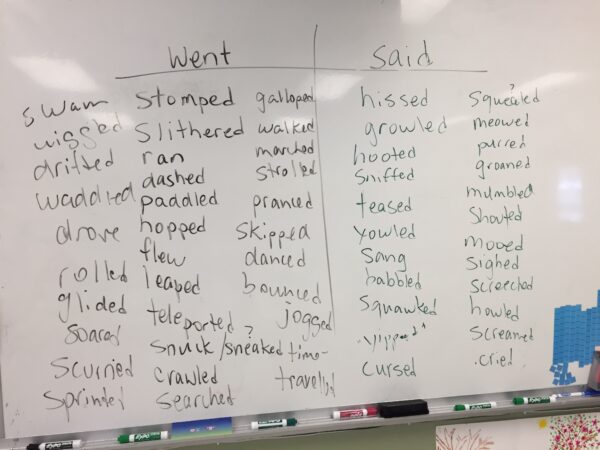 Went
said
swam
drifted
waddled
drove
rolled
glided
soared
scurried
sprinted
stomped
slithered
ran
dashed
paddled
hopped
flew
leaped
teleported?
snuck/sneaked
crawled
searched
galloped
walked
marched
strolled
pranced
skipped
danced
bounced
jogged
time-
travelled
hissed
growled
hooted
sniffed
teased
yowled
sang
babbled
squawked
"yipped"
cursed
squealed
meowed
purred
groaned
mumbled
shouted
mooed
sighed
screeched
howled
screamed
cried